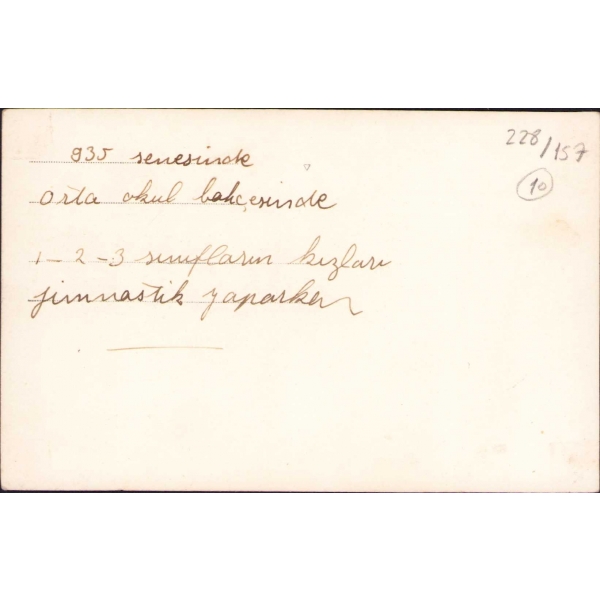 228/157
10
935 senesinde
orta okul bahçesinde
1-2-3 sınıfların kızları
jimnastik yaparken